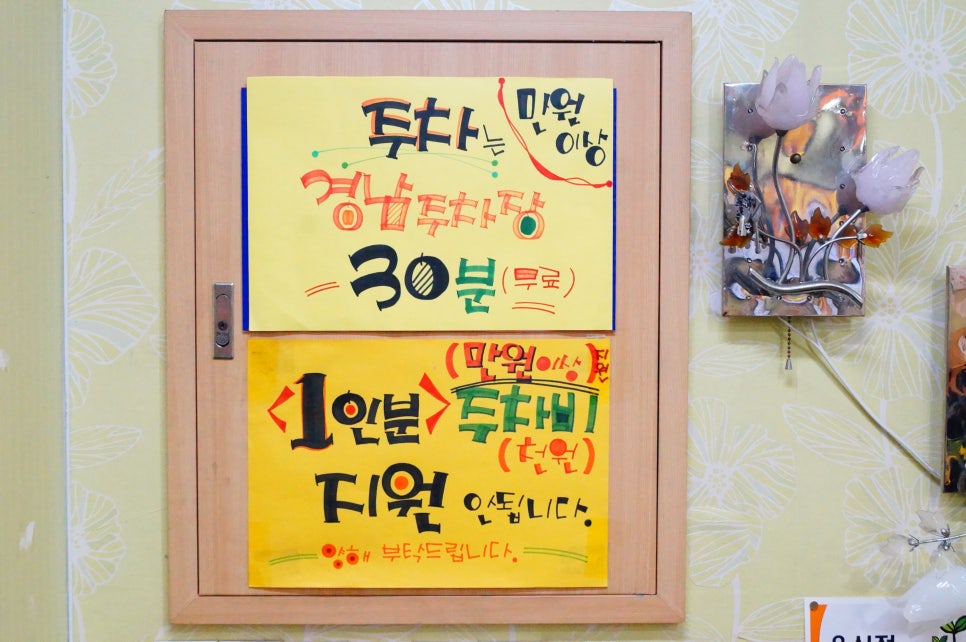 주차는 만원
이상
경남주차장
30분(무료)
(만원이상)지원
<1인분> 주차비
(천원)
지원 안됩니다.
양해 부탁드립니다.